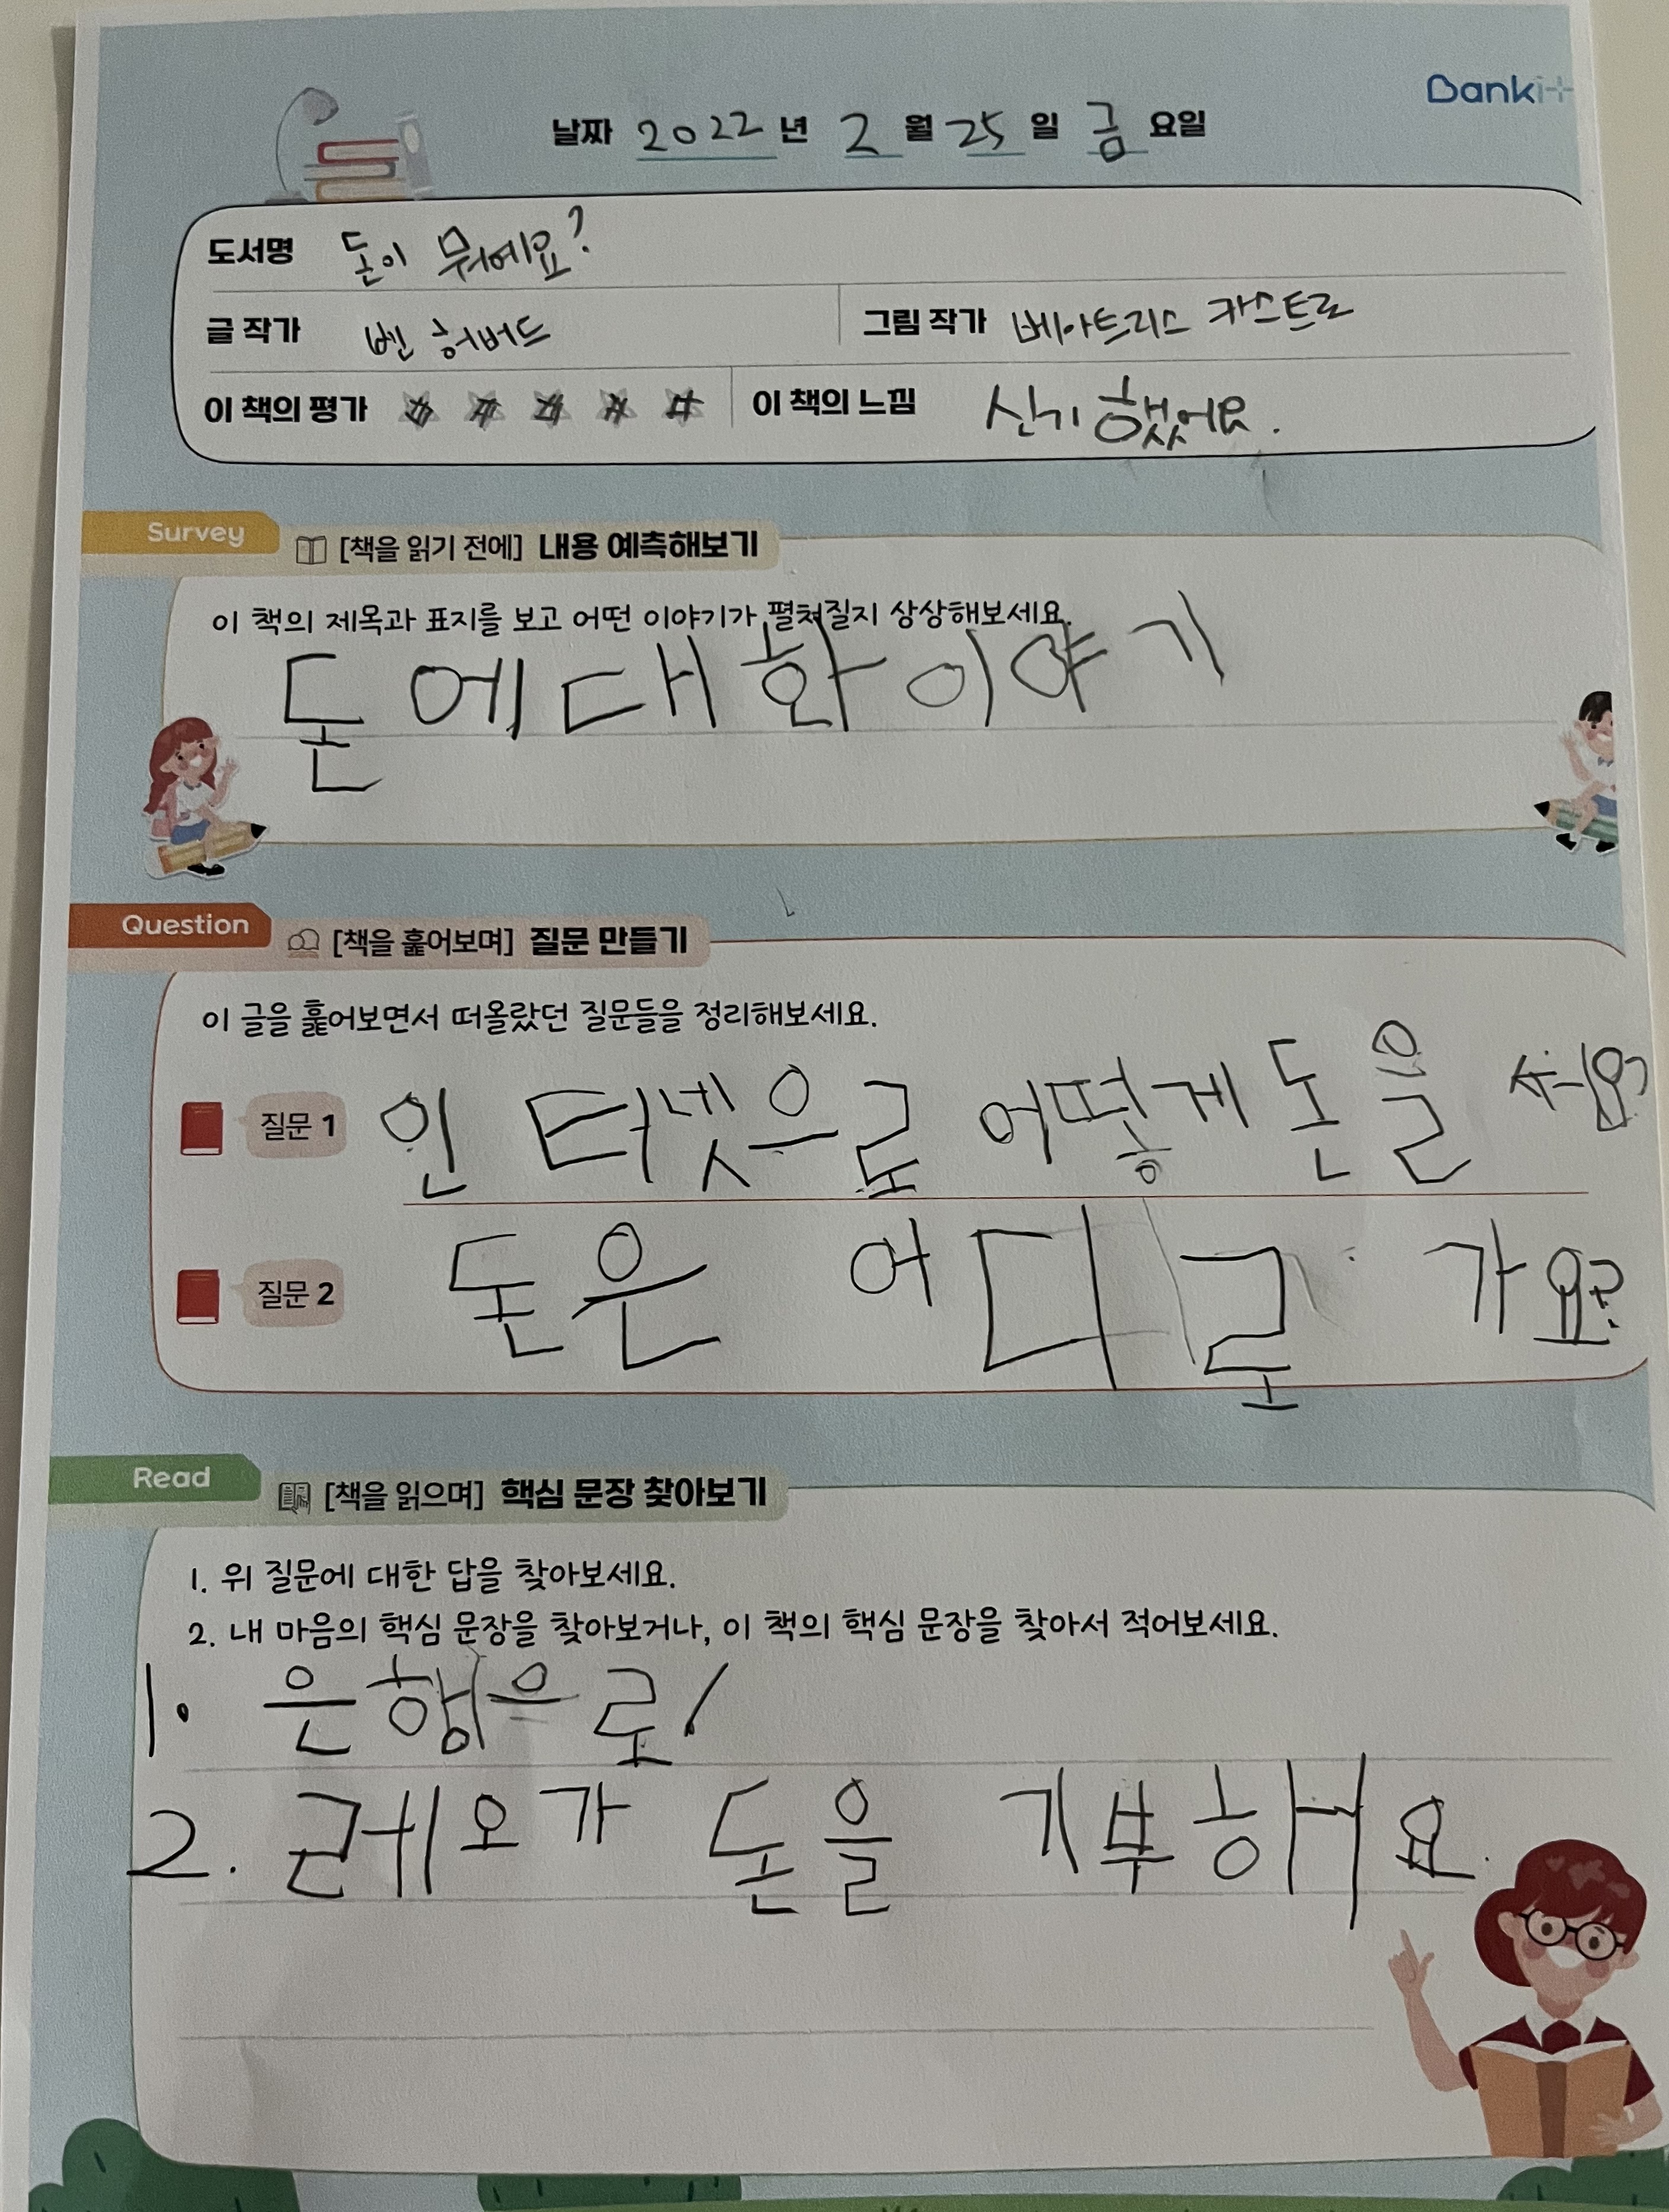 Bankit
날짜 2022 년 2 월 25 일 금 요일
도서명 돈이 뭐에요?
글 작가 벤 허버드 그림 작가 베아트리스 카스트로
이 책의 평가 이 책의 느낌 신기했어요.
Survey [책을 읽기 전에] 내용 예측해보기
이 책의 제목과 표지를 보고 어떤 이야기가 펼쳐질지 상상해보세요.
돈에대화이야기
Question [책을 훑어보며] 질문 만들기
이 글을 훑어보면서 떠올랐던 질문들을 정리해보세요.
질문 1 인터넷으로 어떻게 돈을 써요?
질문 2 돈은 어디로 가요?
Read [책을 읽으며] 핵심 문장 찾아보기
1. 위 질문에 대한 답을 찾아보세요.
2. 내 마음의 핵심 문장을 찾아보거나, 이 책의 핵심 문장을 찾아서 적어보세요.
1. 은행으로!
2. 레오가 돈을 기부해요.